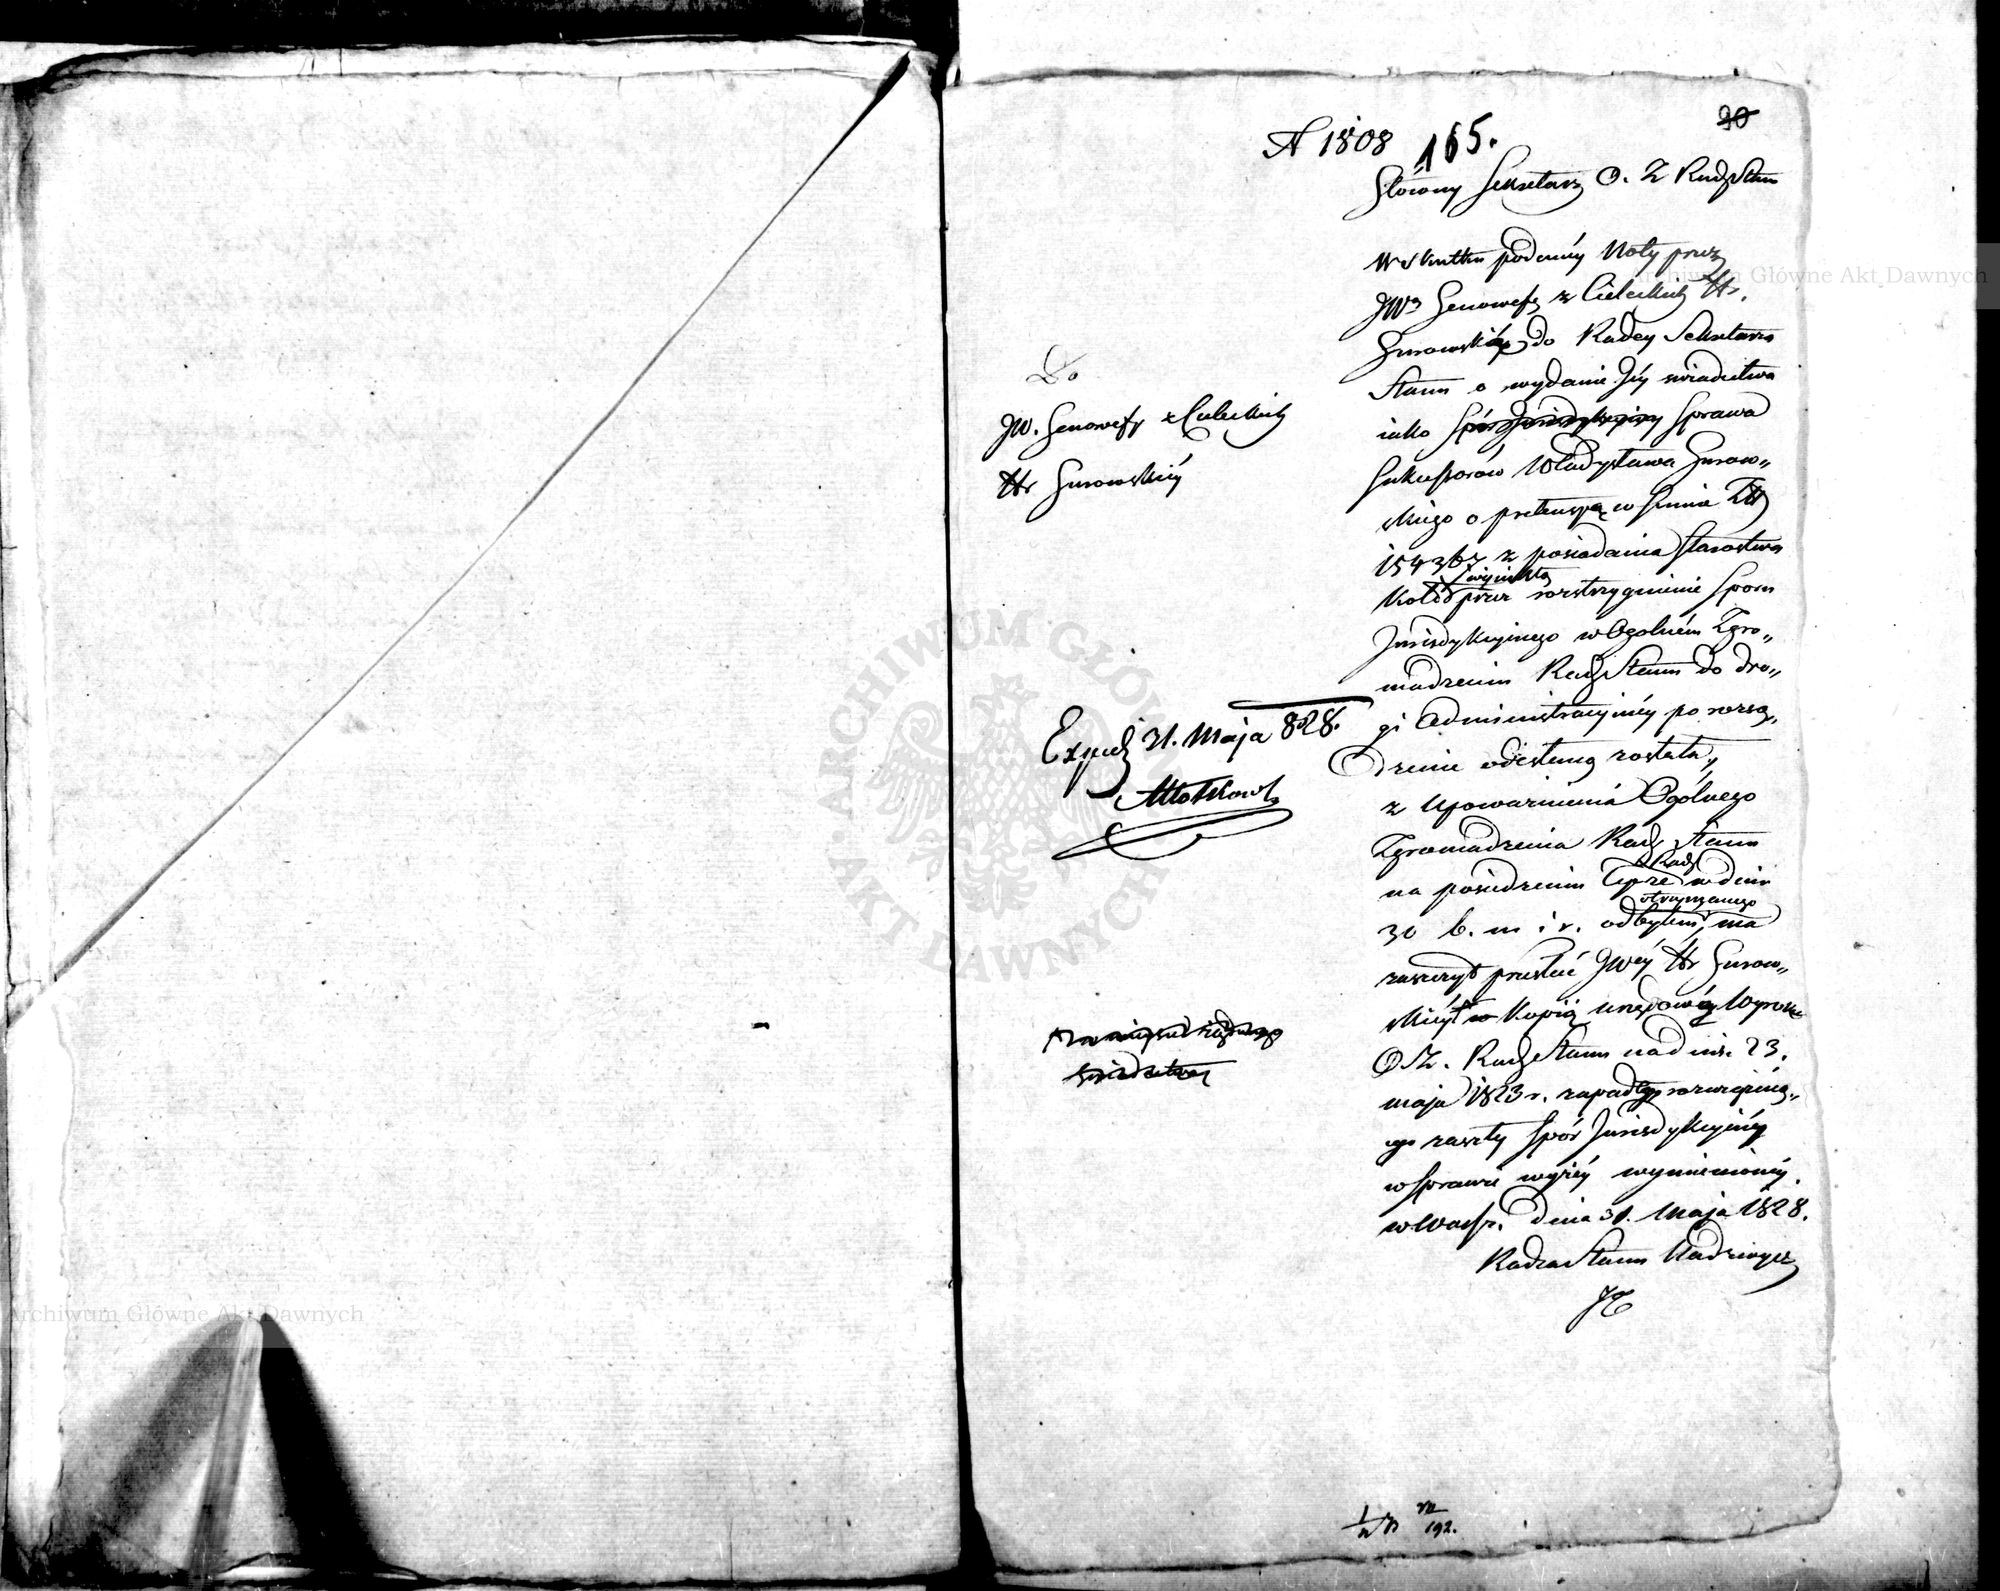 90
N 1808 165.
Główny Sekretarz O. Z Rady Stanu
W skutku podanéy Noty przez
JWą Genowefę z Cieleckich Hr.
Gurowską do Radcy Sekretarza
Stanu o wydanie Jéy swiadectwa
iako Sprawa
Sukcessorów Władysława Gurow„
skiego o pretensyą w summie
154367 z posiadania Starostwa
Kolo wynikłą
przez rozstrzygnienie Sporu
Jurisdykcyinego w Ogolném Zgro„
madzeniu Rady Stanu do dro„
gi Administracyinéy po rozsą„
dzenie odesłaną została,
z Upoważnienia Ogólnego
Zgromadzenia Rady Stanu
na posiedzeniu Teyże Rady w dniu
30 b. m i r. odbytem, otrzymanego ma
zaszczyt przesłać JWéy Hr Gurow„
skiéy w Kopii urzędowéy Wyrok
O. Z. Rady Stanu na dniu 23.
maja 1823 r. zapadły rozwiązuią„
cy zaszły Spór Jurisdykcyiny
w Sprawie wyżéy wymienionéy.
w Warsz. dnia 31. Maja 1828.
Radca Stanu Nadzwycz
Do
JW. Genowefy z Cieleckich
Hr Gurowskiéy
Exped 31. Maja 828.
192.
Archiwum Główne Akt Dawnych
Archiwum Główne Akt Dawnych
ARCHIWUM GŁÓWNE AKT DAWNYCH